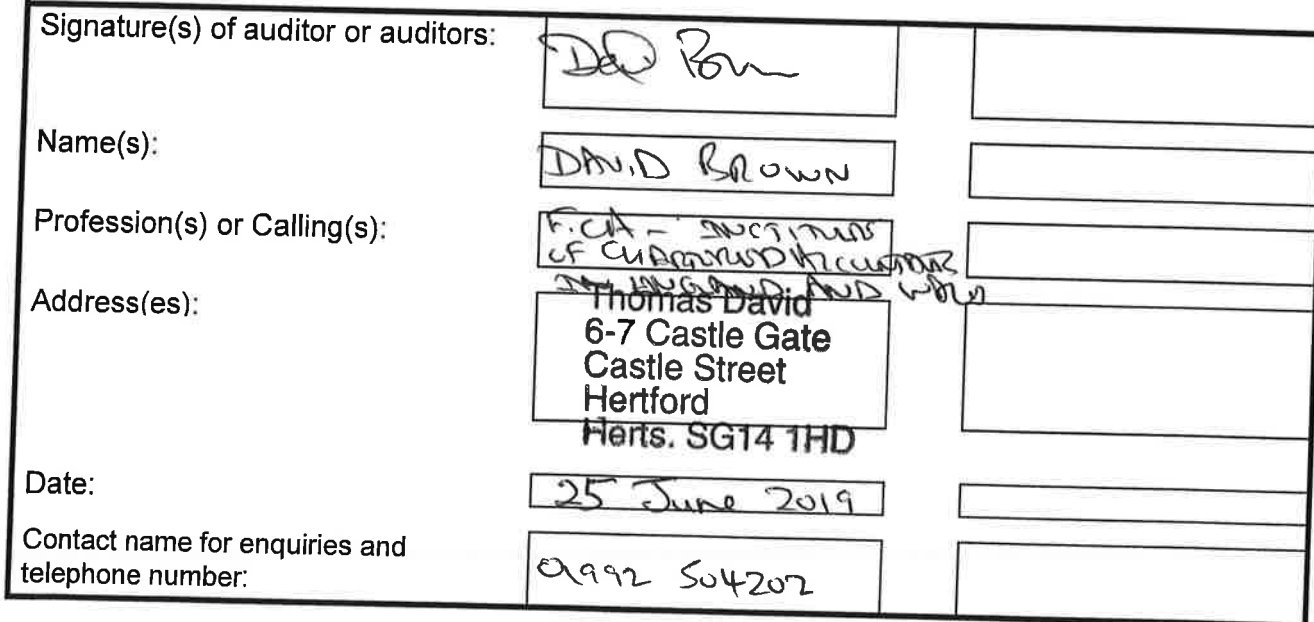 Signature(s) of auditor or auditors:
Name(s): DAVID BROWN
Profession(s) or Calling(s): F.CA - INSTITUTE
OF CHARTERED ACCOUNTANTS
IN ENGLAND AND WALES
Address(es): Thomas David
6-7 Castle Gate
Castle Street
Hertford
Herts. SG14 1HD
Date: 25 June 2019
Contact name for enquiries and
telephone number: 01992 504202